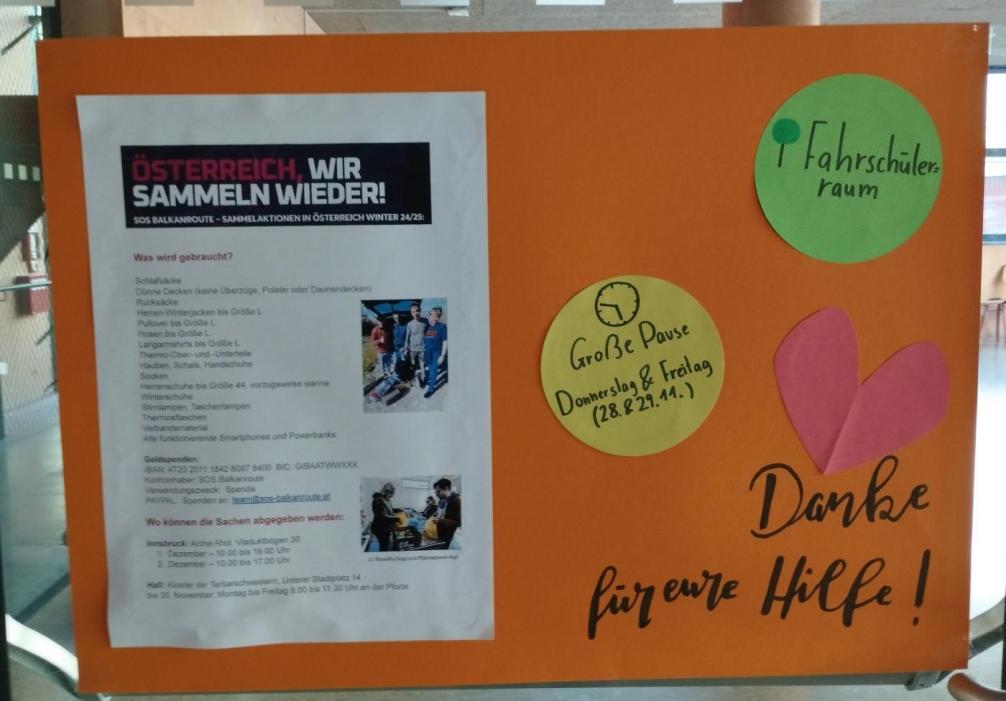 ÖSTERREICH, WIR
SAMMELN WIEDER!
SOS BALKANROUTE – SAMMELAKTIONEN IN ÖSTERREICH WINTER 24/25:
Was wird gebraucht?
Schlafsäcke
Dünne Decken (keine Überzüge, Polster oder Daunendecken)
Rucksäcke
Herren-Winterjacken bis Größe L
Pullover bis Größe L
Hosen bis Größe L
Langarmshirts bis Größe L
Thermo-Ober- und -Unterteile
Hauben, Schals, Handschuhe
Socken
Herrenschuhe bis Größe 44, vorzugsweise warme
Winterschuhe
Stirnlampen, Taschenlampen
Thermosflaschen
Verbandsmaterial
Alte funktionierende Smartphones und Powerbanks
Geldspenden:
IBAN: AT20 2011 1842 8097 8400 BIC: GIBAATWWXXX
Kontoinhaber: SOS Balkanroute
Verwendungszweck: Spende
PAYPAL: Spenden an: team@sos-balkanroute.at
Wo können die Sachen abgegeben werden:
Innsbruck: Arche Ahoi, Viaduktbögen 30
1. Dezember – 10.00 bis 19.00 Uhr
2. Dezember – 10.00 bis 17.00 Uhr
Hall: Kloster der Tertiarschwestern, Unterer Stadtplatz 14
bis 30. November: Montag bis Freitag 8.00 bis 11.30 Uhr an der Pforte
Fahrschüler=
raum
Große Pause
Donnerstag & Freitag
(28.&29.11.)
Danke
für eure Hilfe!